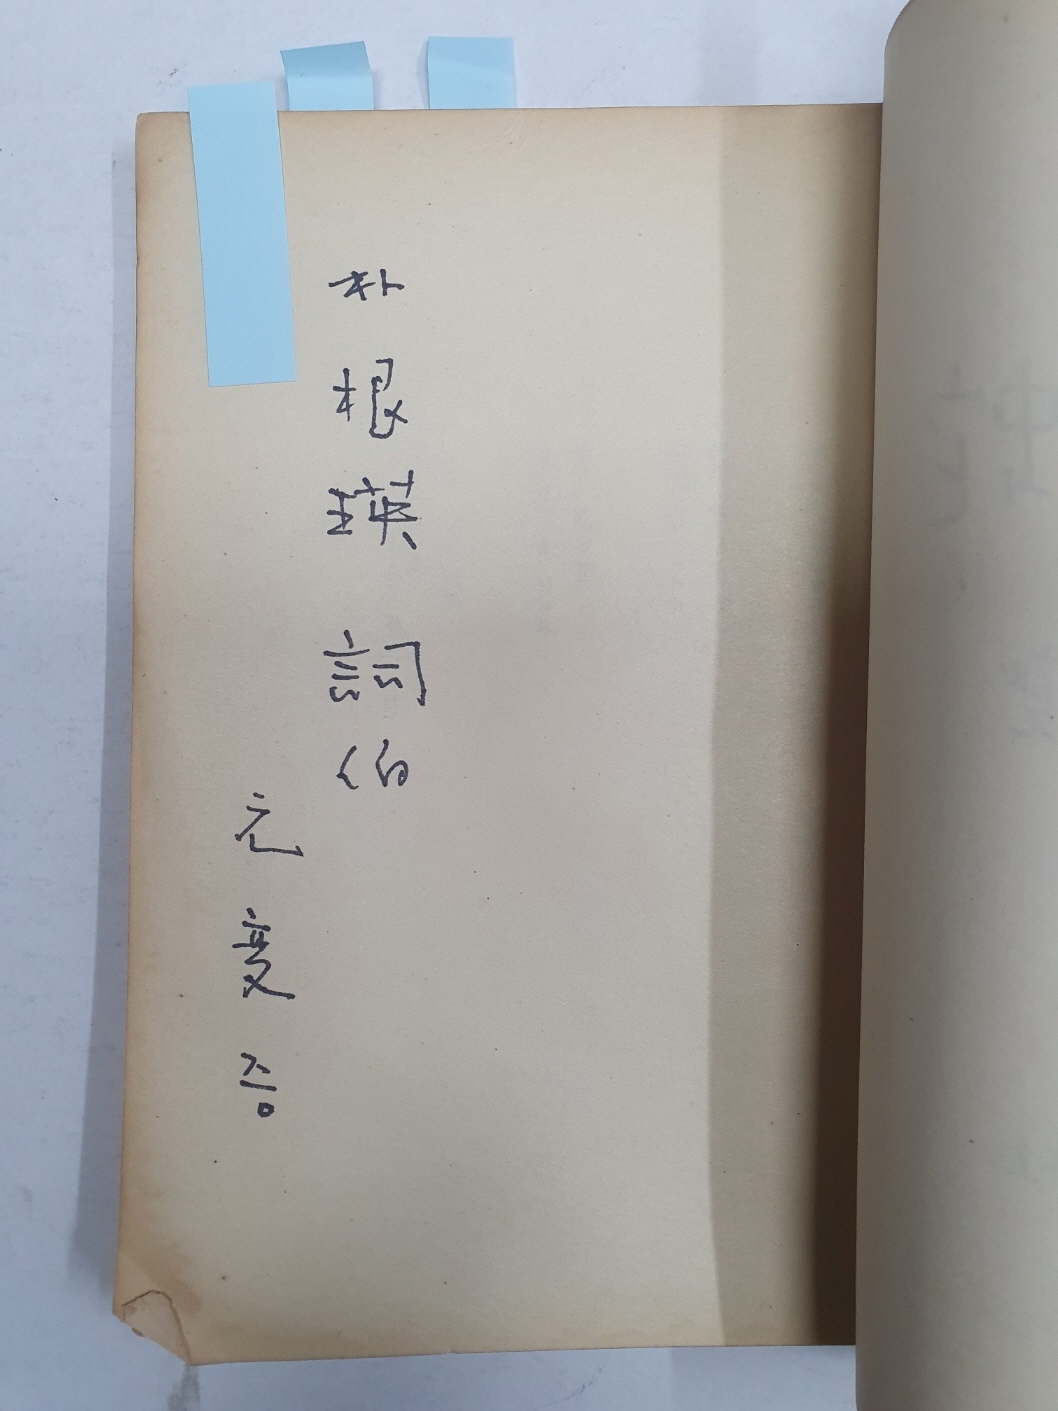 朴根瑛 詞伯
元夏 증